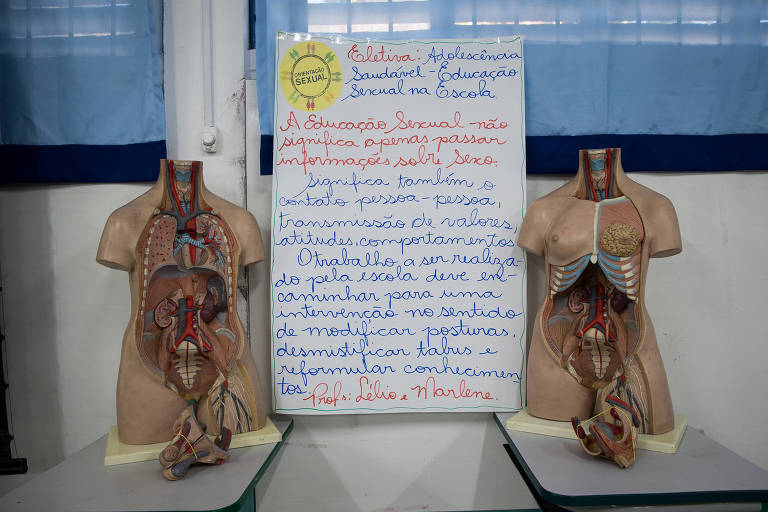 ORIENTAÇÃO
SEXUAL
Eletiva: Adolescência
Saudável - Educação
Sexual na Escola
A Educação Sexual não
significa apenas passar
informações sobre Sexo.
Significa também o
contato pessoa-pessoa,
transmissão de valores,
atitudes, comportamentos
O trabalho a ser realiza-
do pela escola deve en-
caminhar para uma
intervenção no sentido
de modificar posturas,
desmistificar tabus e
reformular conhecimen-
tos. Profs: Lélio e Marlene.